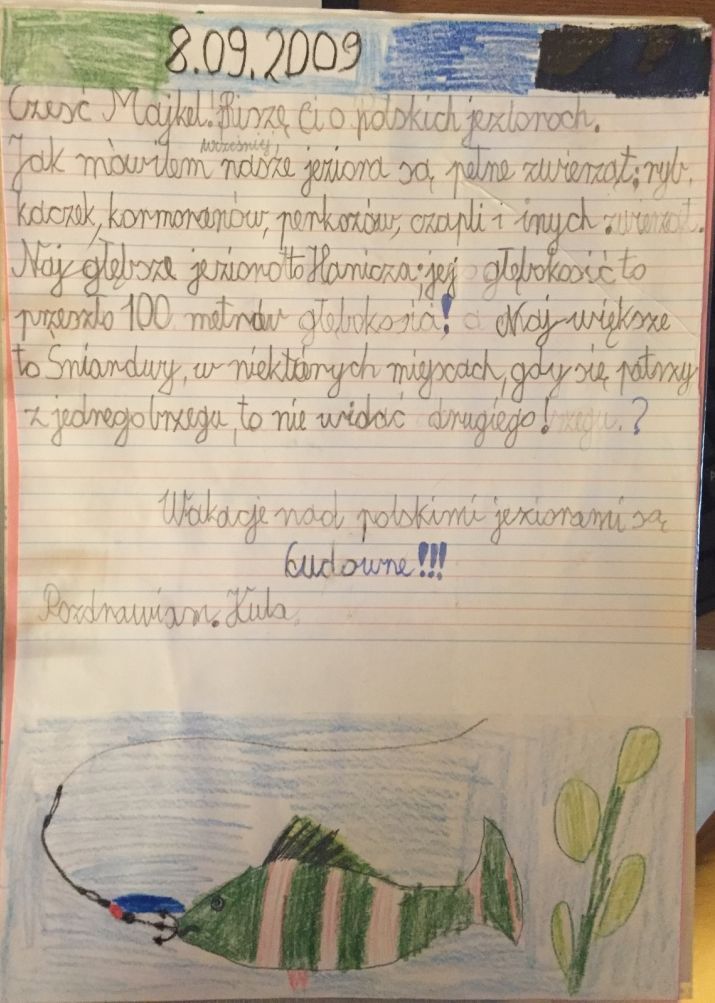 8.09.2009
Cześć Majkel! Piszę Ci o polskich jeziorach.
wcześniej,
Jak mówiłem nasze jeziora są pełne zwierząt: ryb,
kaczek, kormoranów, perkozów, czapli i inych zwierząt.
Naj głębsze jezioro to Hanicza: jej głębokość to
przeszło 100 metrów głębokości! a Naj większe
to Śniardwy, w niektórych miejscach, gdy się patrzy
z jednego brzegu, to nie widać drugiego! brzegu.?
Wakacje nad polskimi jeziorami są
Cudowne!!!
Pozdrawiam. Kuba.